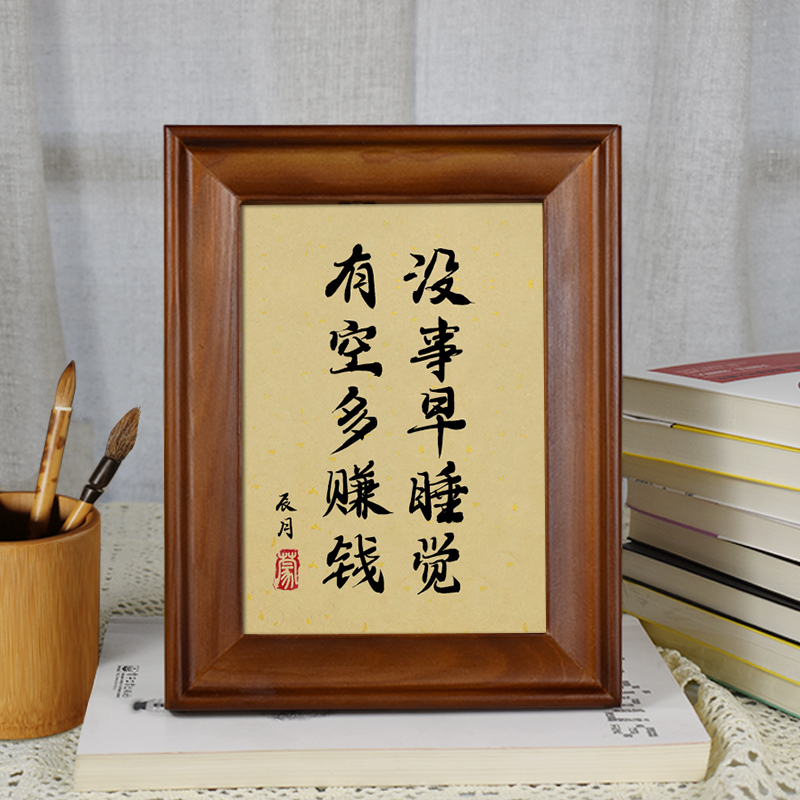 没事早睡觉
有空多赚钱
辰月